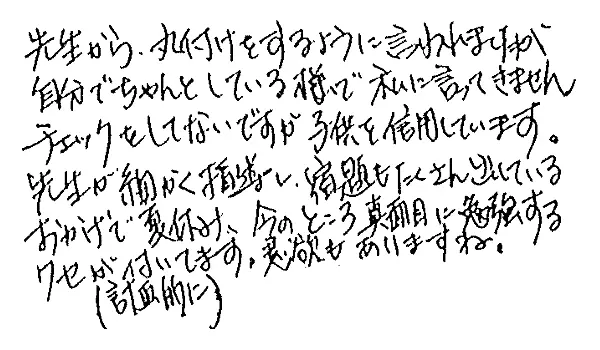 先生から、丸付けをするように言われましたが
自分でちゃんとしている様で私に言ってきません
チェックをしてないですが子供を信用しています。
先生が細かく指導し、宿題もたくさん出している
おかげで夏休み、今のところ真面目に勉強する
クセが付いてます。意欲もありますね。
(計画的に)